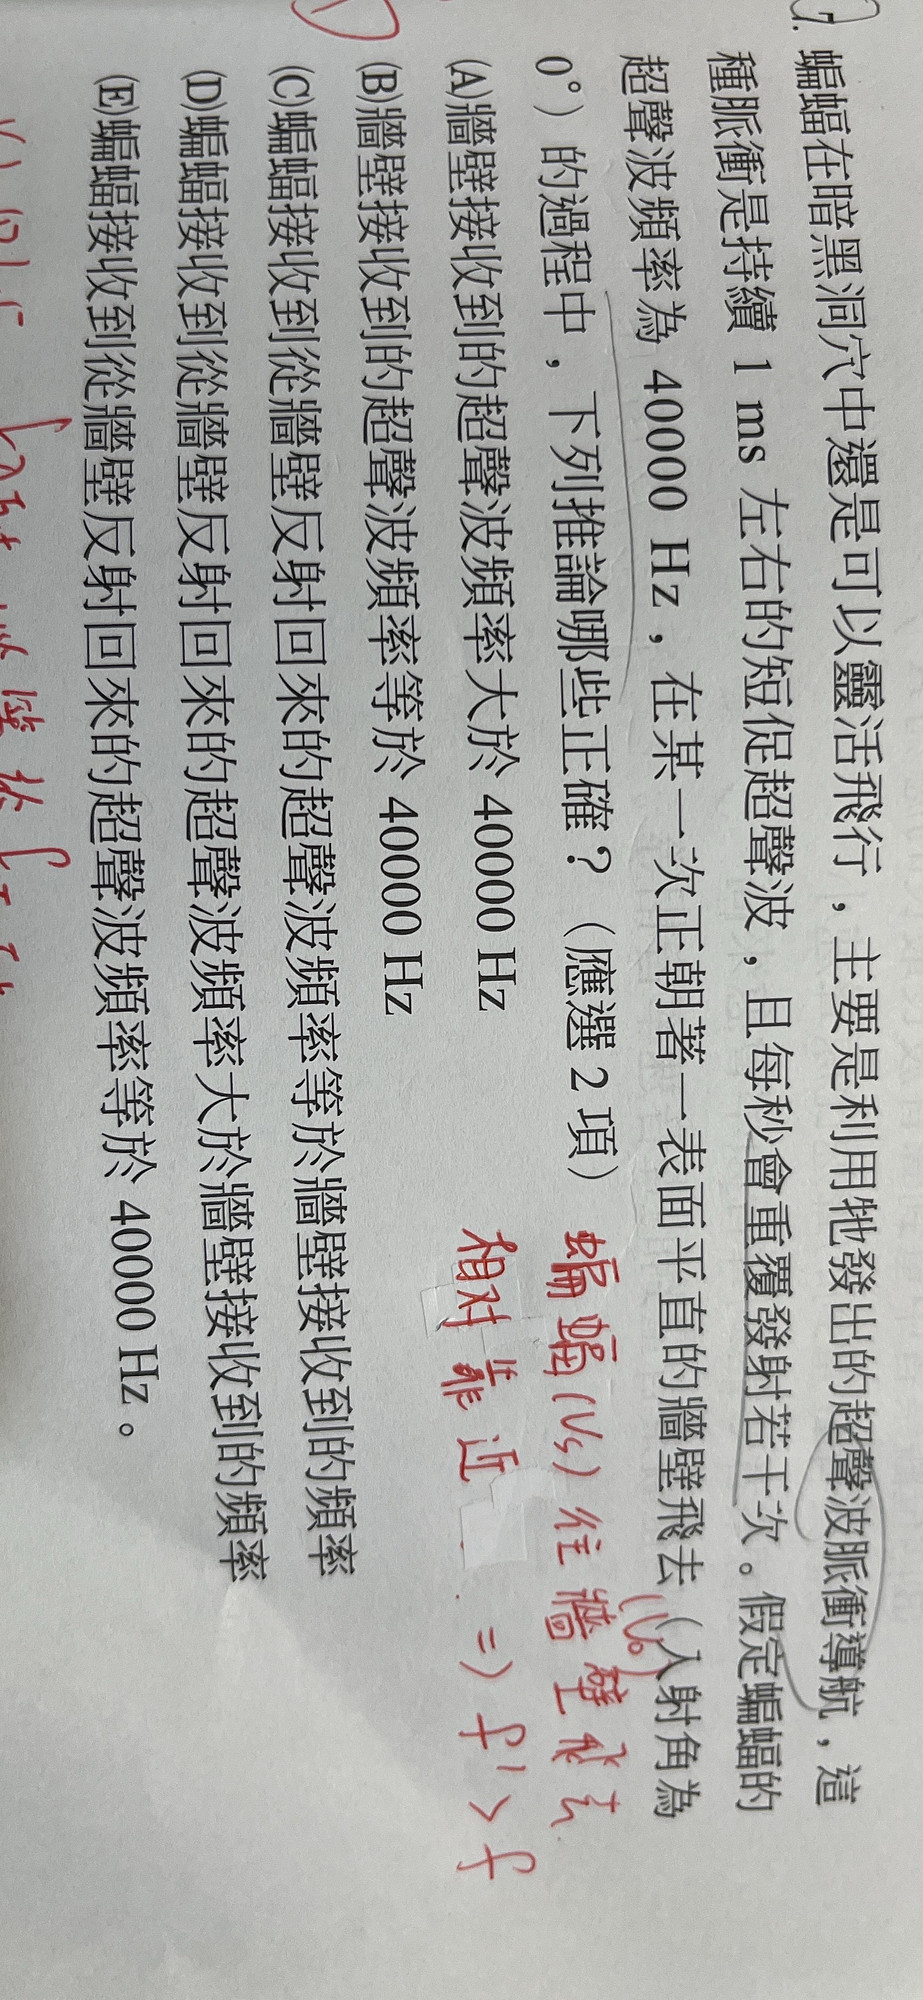 7. 蝙蝠在暗黑洞穴中還是可以靈活飛行，主要是利用牠發出的超聲波脈衝導航，這
種脈衝是持續 1 ms 左右的短促超聲波，且每秒會重覆發射若干次。假定蝙蝠的
超聲波頻率為 40000 Hz，在某一次正朝著一表面平直的牆壁飛去（入射角為
0°）的過程中，下列推論哪些正確？（應選 2 項）
(A)牆壁接收到的超聲波頻率大於 40000 Hz
(B)牆壁接收到的超聲波頻率等於 40000 Hz
(C)蝙蝠接收到從牆壁反射回來的超聲波頻率等於牆壁接收到的頻率
(D)蝙蝠接收到從牆壁反射回來的超聲波頻率大於牆壁接收到的頻率
(E)蝙蝠接收到從牆壁反射回來的超聲波頻率等於 40000 Hz。
(V₀)
蝙蝠(Vs)往牆壁飛去
相對靠近 => f' > f